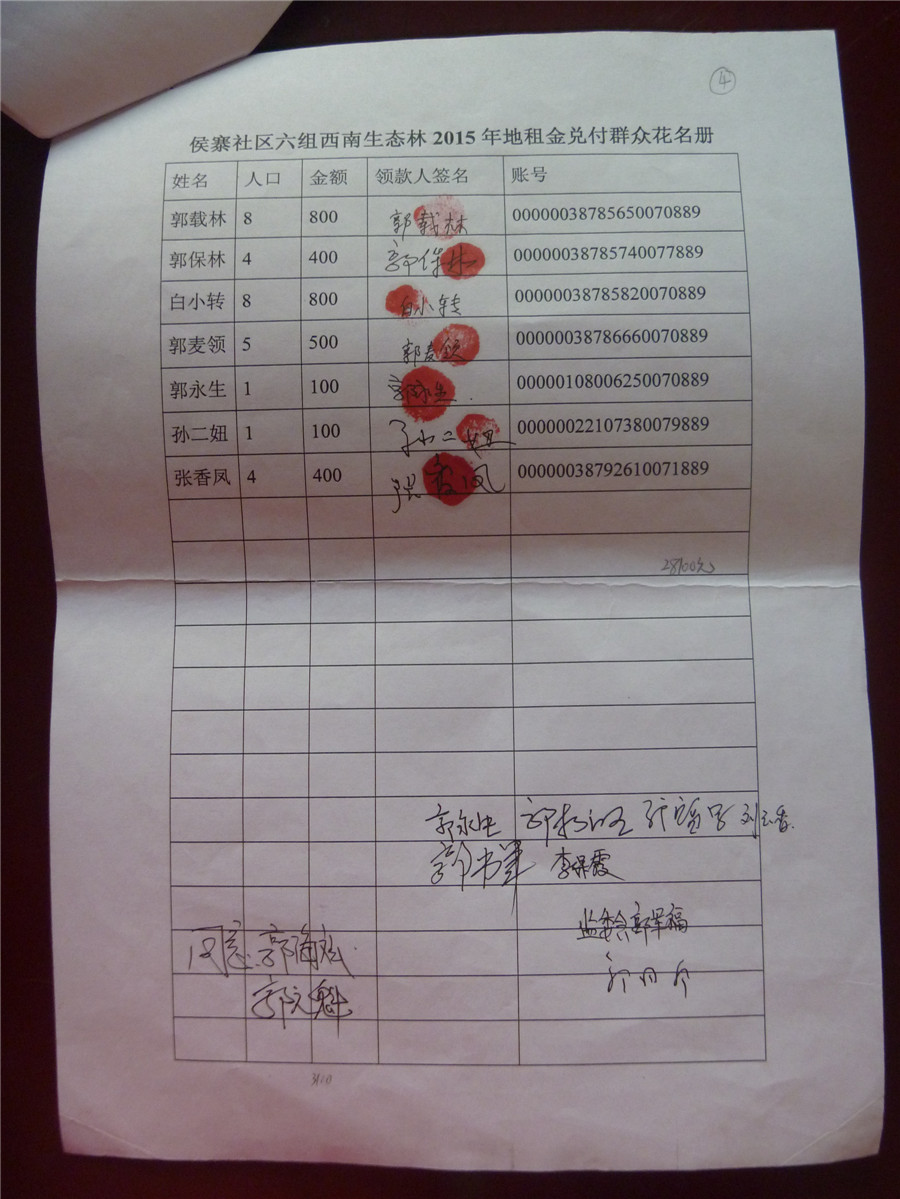 ④
侯寨社区六组西南生态林 2015 年地租金兑付群众花名册
姓名 人口 金额 领款人签名 账号
郭载林 8 800 郭载林 00000038785650070889
郭保林 4 400 郭保林 00000038785740077889
白小转 8 800 白小转 00000038785820070889
郭麦领 5 500 郭麦领 00000038786660070889
郭永生 1 100 郭永生 00000108006250070889
孙二妞 1 100 孙二妞 00000022107380079889
张香凤 4 400 张香凤 00000038792610071889
28100元
郭永生 刘云香
李保霞
监委会 郭军福
同意 郭海斌
郭文魁
3100